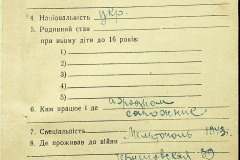 4. Національність укр.
5. Родинний стан
при ньому діти до 16 років:
1)
2)
3)
4)
5)
6. Ким працює і де аэродром
сапожник
7. Спеціальність Мелитополь 1943.
8. Де проживав до війни
39